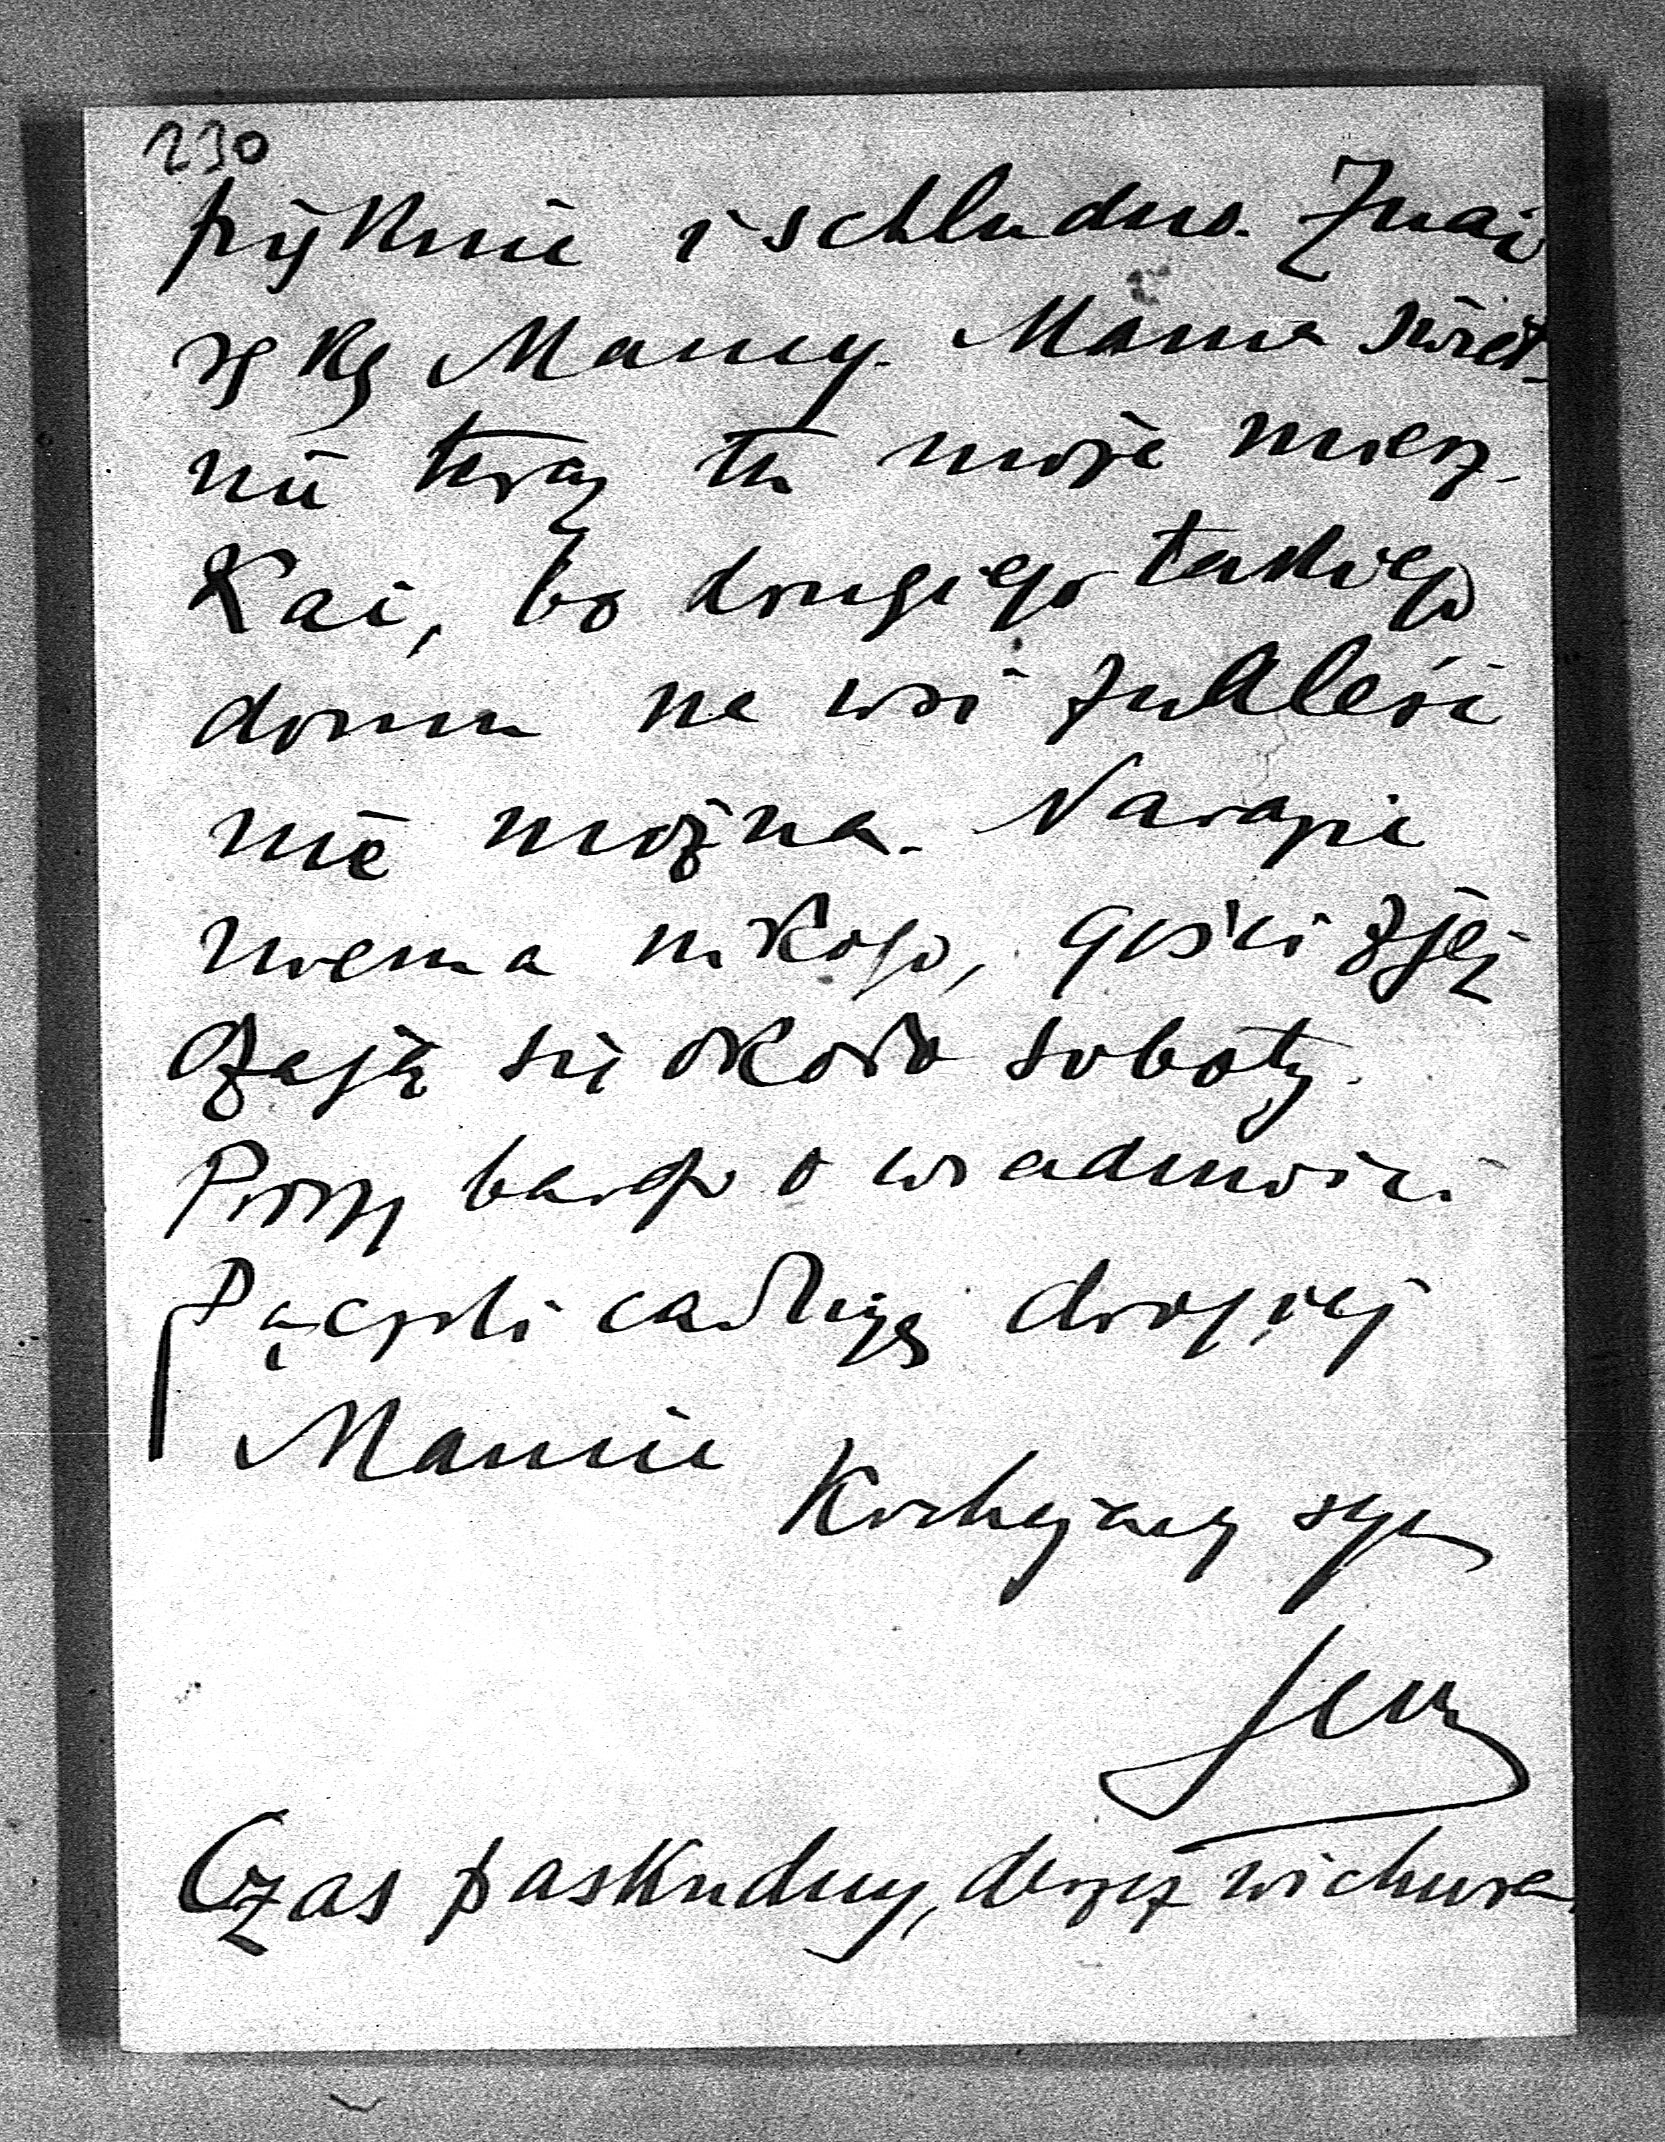 230
pięknie i schludno. Znać
rękę Mamy. Mama świet-
nie teraz tu może miesz-
kać, bo drugiego takiego
domu na wsi znaleść
nie można. Narazie
niema nikogo, goście zje-
żdżają się około soboty.
Proszę bardzo o wiadomości.
Rączki całuję drogiej
Mamie
Kochający syn
Jerzy
Czas paskudny, deszcz wichura